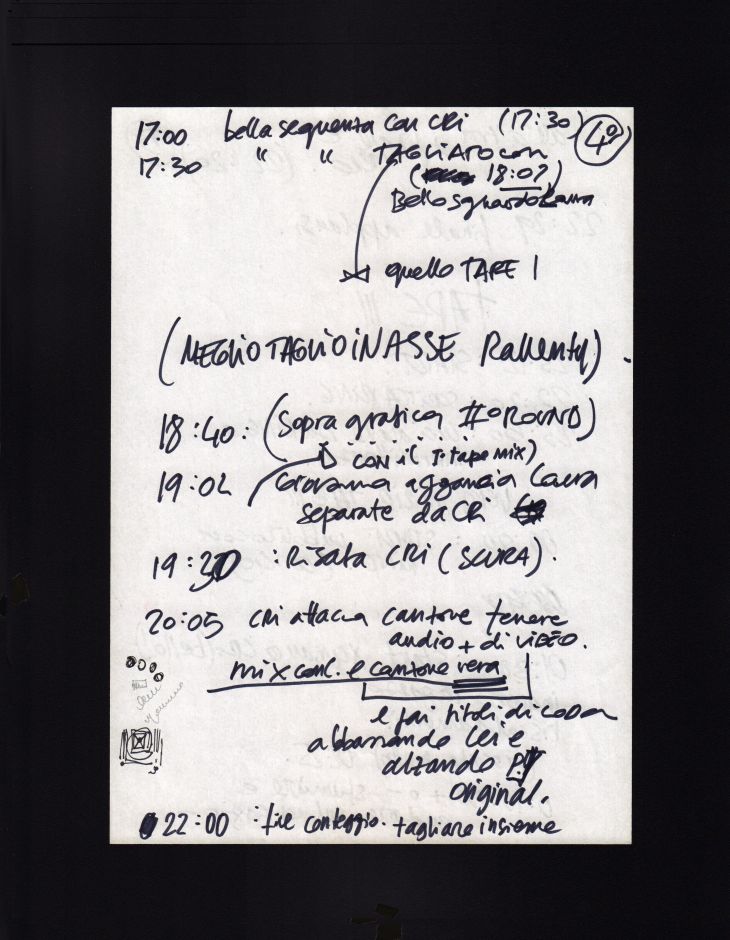 17:00 bella sequenza con CRi (17:30) 4°
17:30 " " TAGLiATO con
( 18:07)
Bello sguardo Laura
quello TAPE 1
(MEGLiO TAGLiO iN ASSE Rallenty) .
18:40: (Sopra grafica II° ROUND)
con il ( I. tape mix)
19:02 Giovanna aggancia Laura
separate da CRi
19:30 : RiSata CRi (SCURA).
20:05 CRi attacca canzone tenere
audio + di ViDEO.
mix conc. e canzone vera
e fai titoli di coda
abbassando lei e
alzando
original.
22:00 : fine conteggio. tagliare insieme